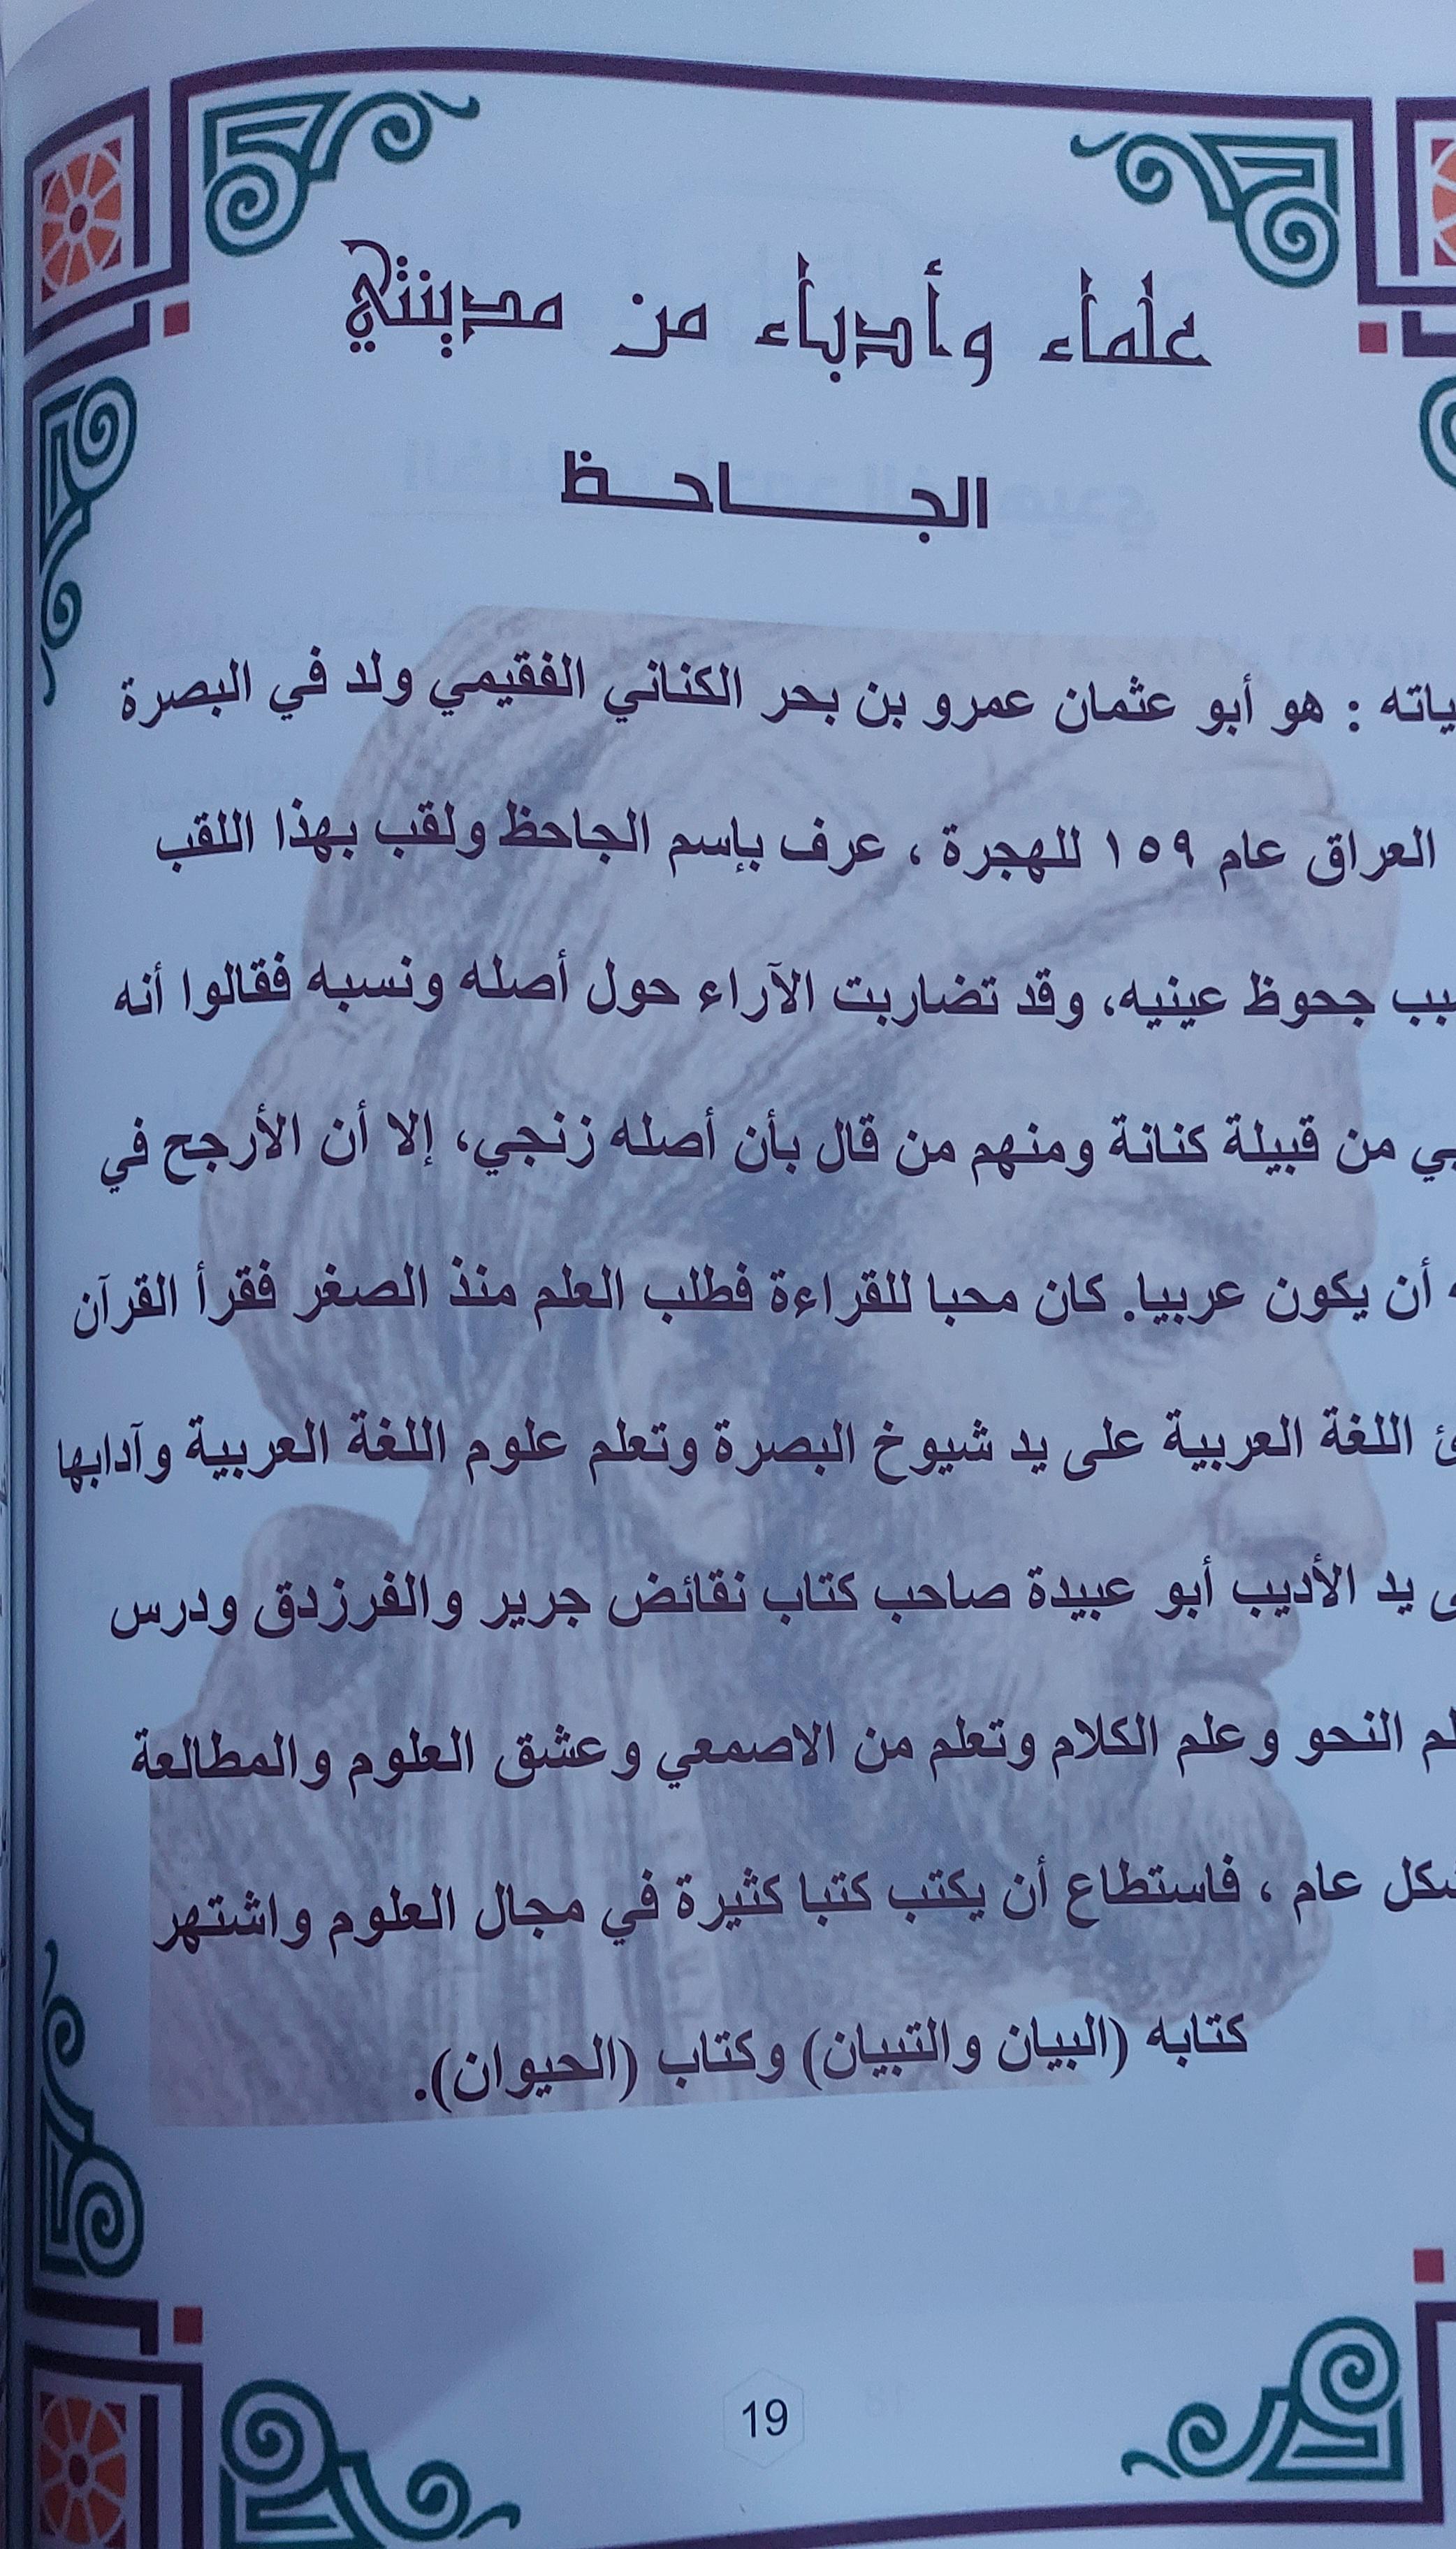 علماء وأدباء من مدينتي
الجاحظ
: هو أبو عثمان عمرو بن بحر الكناني الفقيمي ولد في البصرة
العراق عام ١٥٩ للهجرة ، عرف بإسم الجاحظ ولقب بهذا اللقب
جحوظ عينيه، وقد تضاربت الآراء حول أصله ونسبه فقالوا أنه
من قبيلة كنانة ومنهم من قال بأن أصله زنجي، إلا أن الأرجح في
أن يكون عربيا. كان محبا للقراءة فطلب العلم منذ الصغر فقرأ القرآن
اللغة العربية على يد شيوخ البصرة وتعلم علوم اللغة العربية وآدابها
يد الأديب أبو عبيدة صاحب كتاب نقائض جرير والفرزدق ودرس
النحو وعلم الكلام وتعلم من الاصمعي وعشق العلوم والمطالعة
عام ، فاستطاع أن يكتب كتبا كثيرة في مجال العلوم واشتهر
كتابه (البيان والتبيان) وكتاب (الحيوان).
19